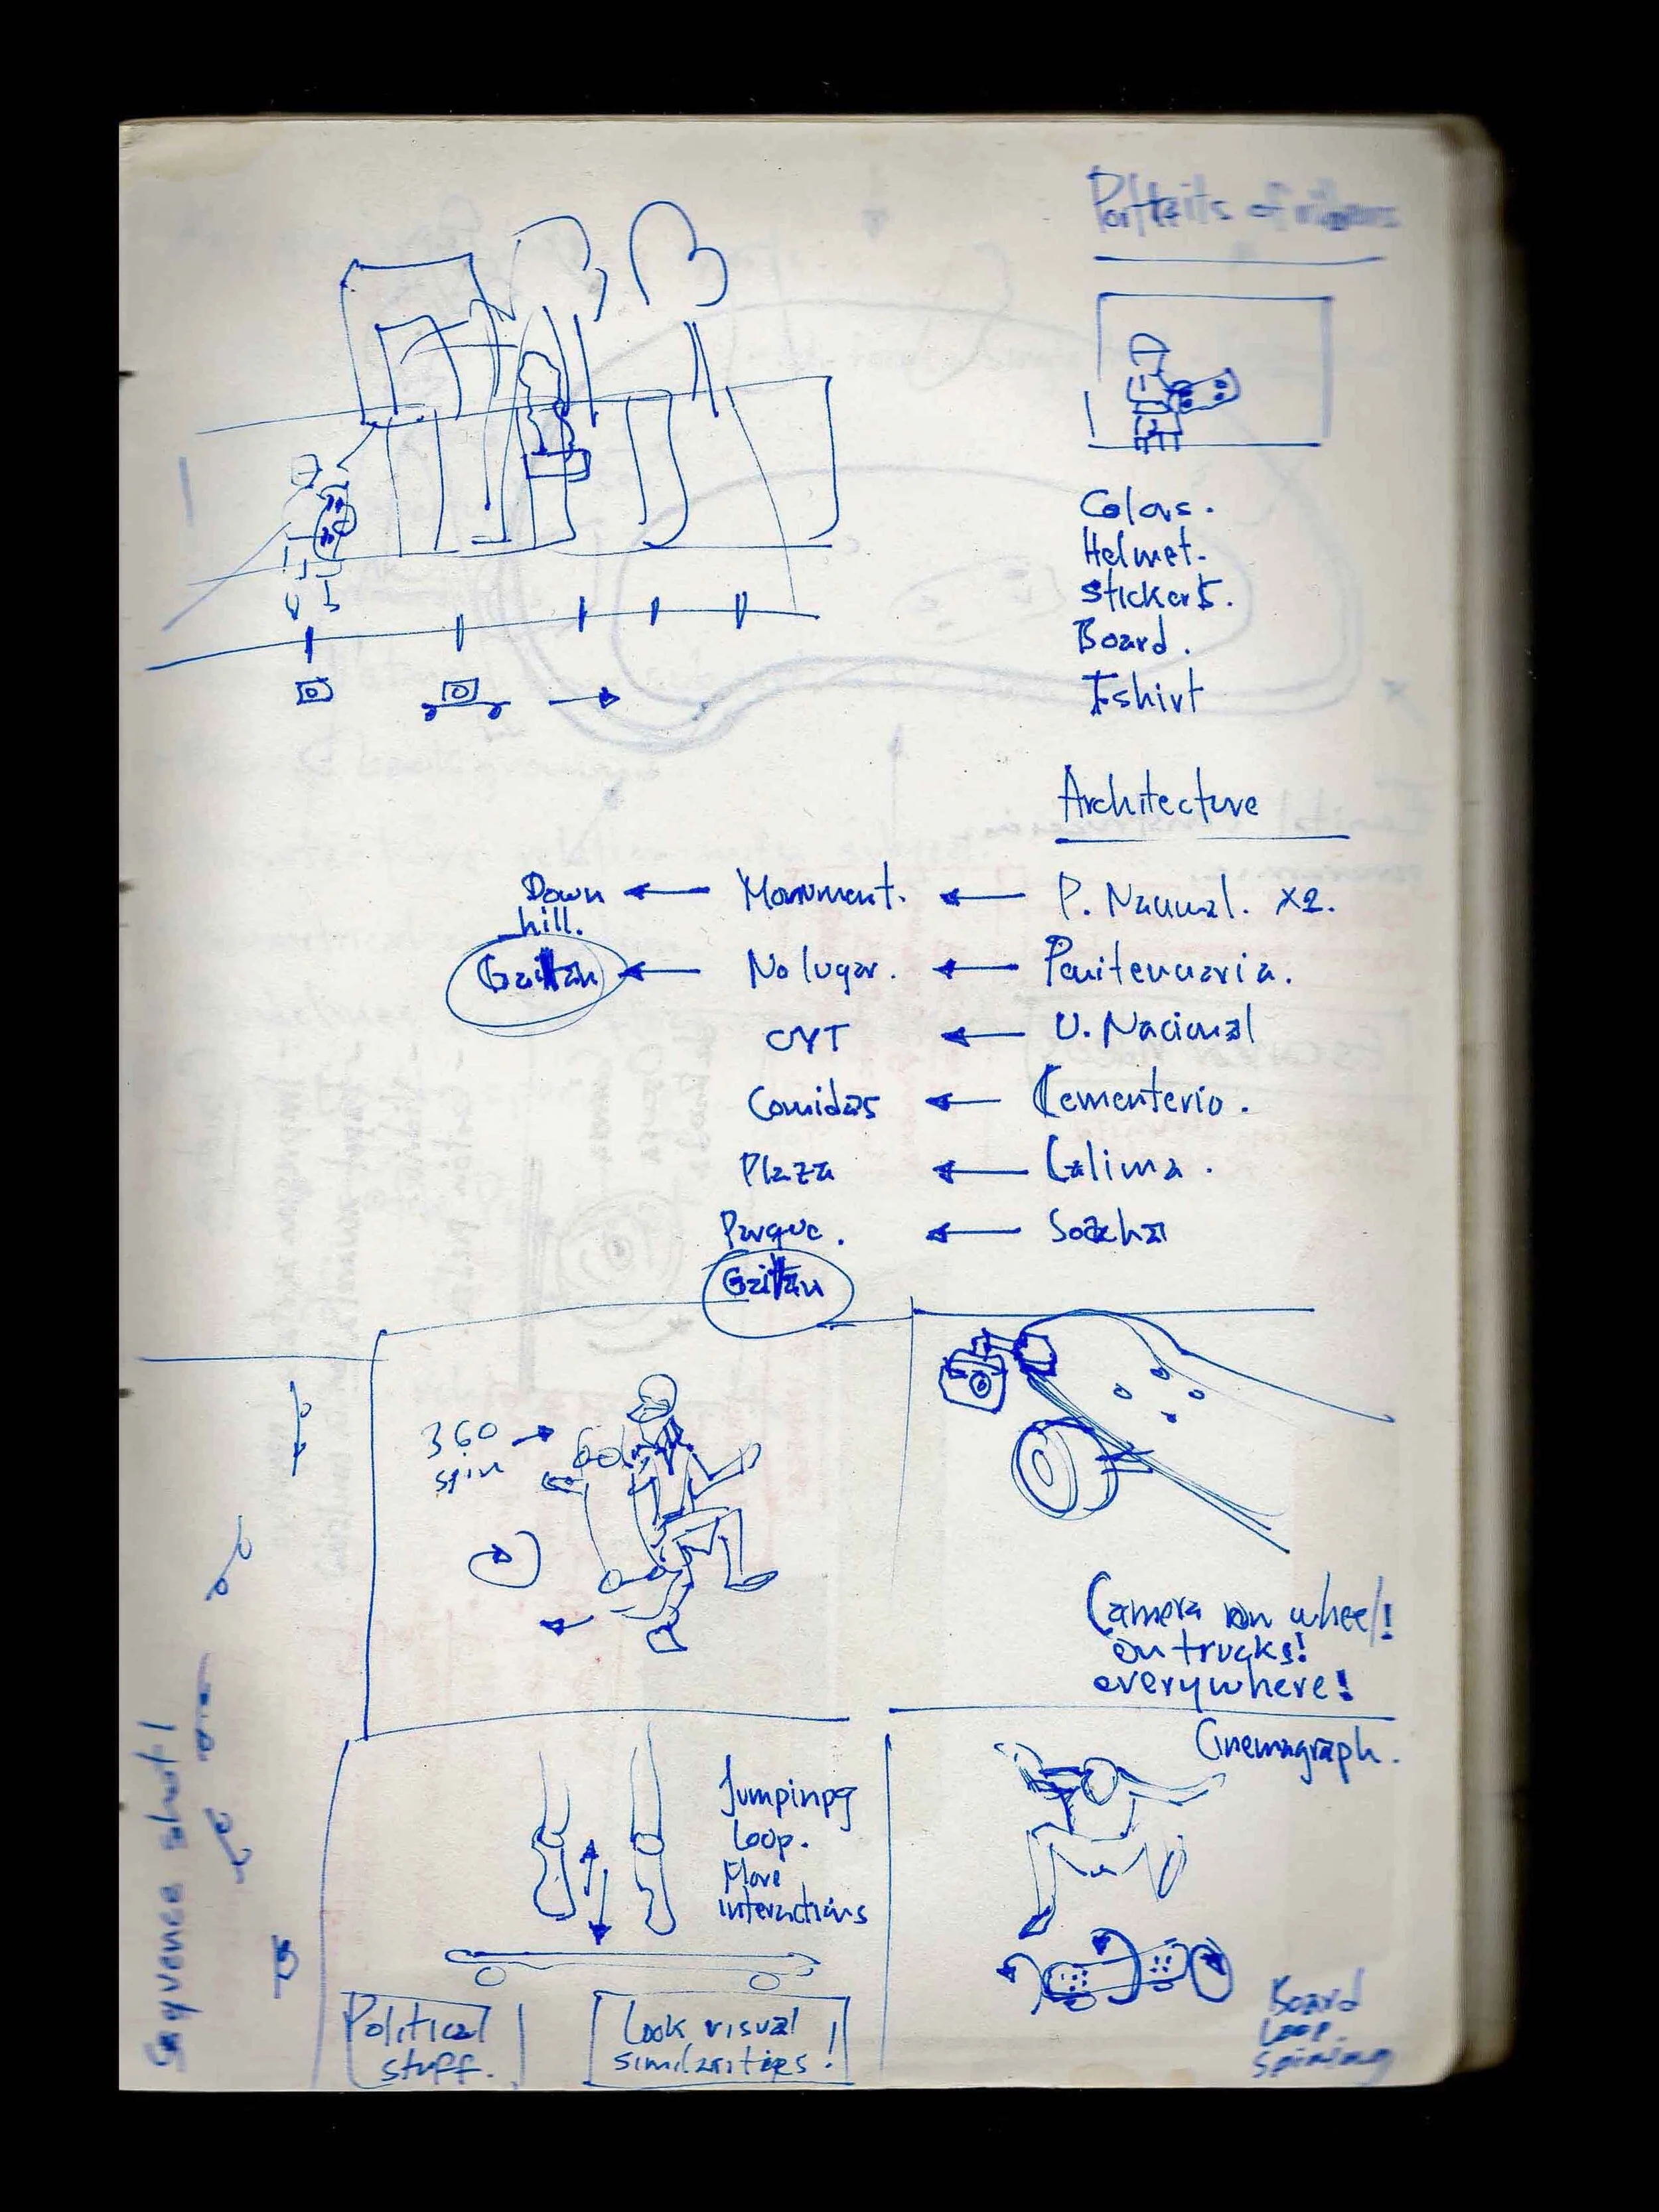 Portraits of riders
Colors.
Helmet.
stickers.
Board.
T-shirt
Architecture
Down hill. ← Monument. ← P. Nacional. x2.
Gaitán ← No lugar. ← Penitenciaria.
CYT ← U. Nacional
Comidas ← Cementerio.
Plaza ← Calima.
Parque. ← Soacha
Gaitán
360
spin
Camera on wheel!
on trucks!
everywhere!
Cinemagraph.
Jumpinpg
Loop.
More
interactions
Board
Loop.
Spining
Political
stuff.
Look visual
similarities!
Sequence shot!